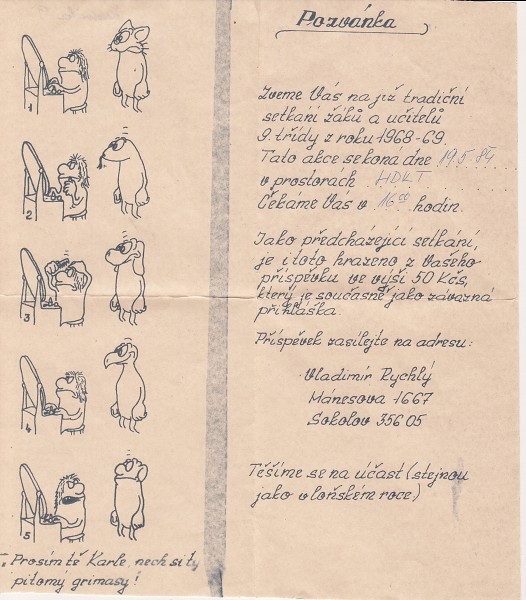 1
2
3
4
5
„Prosím tě Karle, nech si ty
pitomý grimasy!
Pozvánka
Zveme Vás na již tradiční
setkání žáků a učitelů
9. třídy z roku 1968-69.
Tato akce se koná dne 19.5.84
v prostorách HDKT
Čekáme Vás v 16⁰⁰ hodin.
Jako předcházející setkání,
je i toto hrazeno z Vašeho
příspěvku ve výši 50 Kčs,
který je současně jako závazná
přihláška.
Příspěvek zasílejte na adresu:
Vladimír Rychlý
Mánesova 1667
Sokolov 356 05
Těšíme se na účast (stejnou
jako v loňském roce)